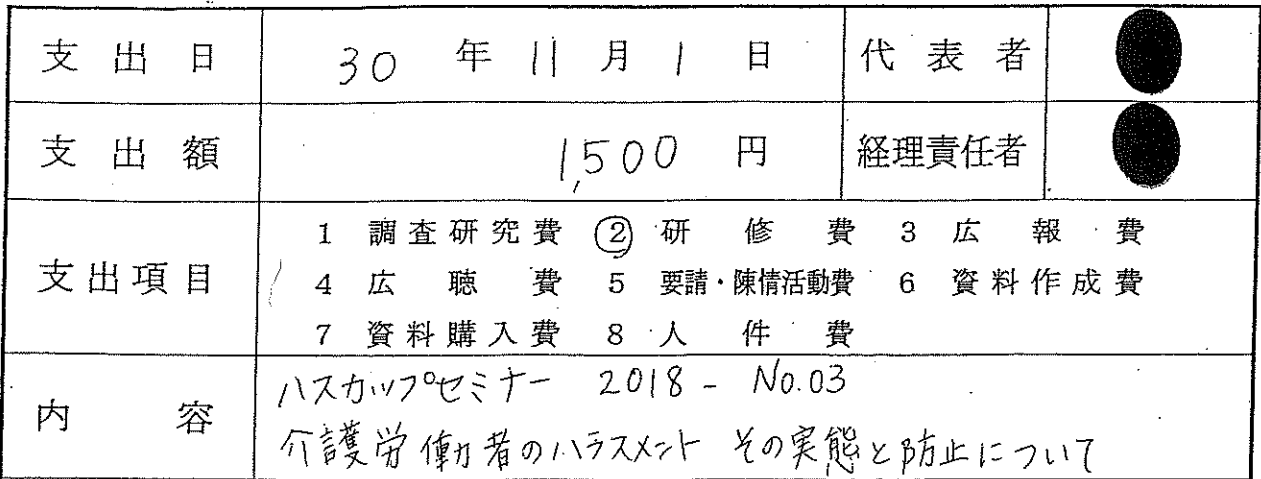 支出日 30年11月1日 代表者
支出額 1,500円 経理責任者
支出項目 1 調査研究費 ② 研修費 3 広報費
4 広聴費 5 要請・陳情活動費 6 資料作成費
7 資料購入費 8 人件費
内容 ハスカップセミナー 2018 - No.03
介護労働者のハラスメント その実態と防止について